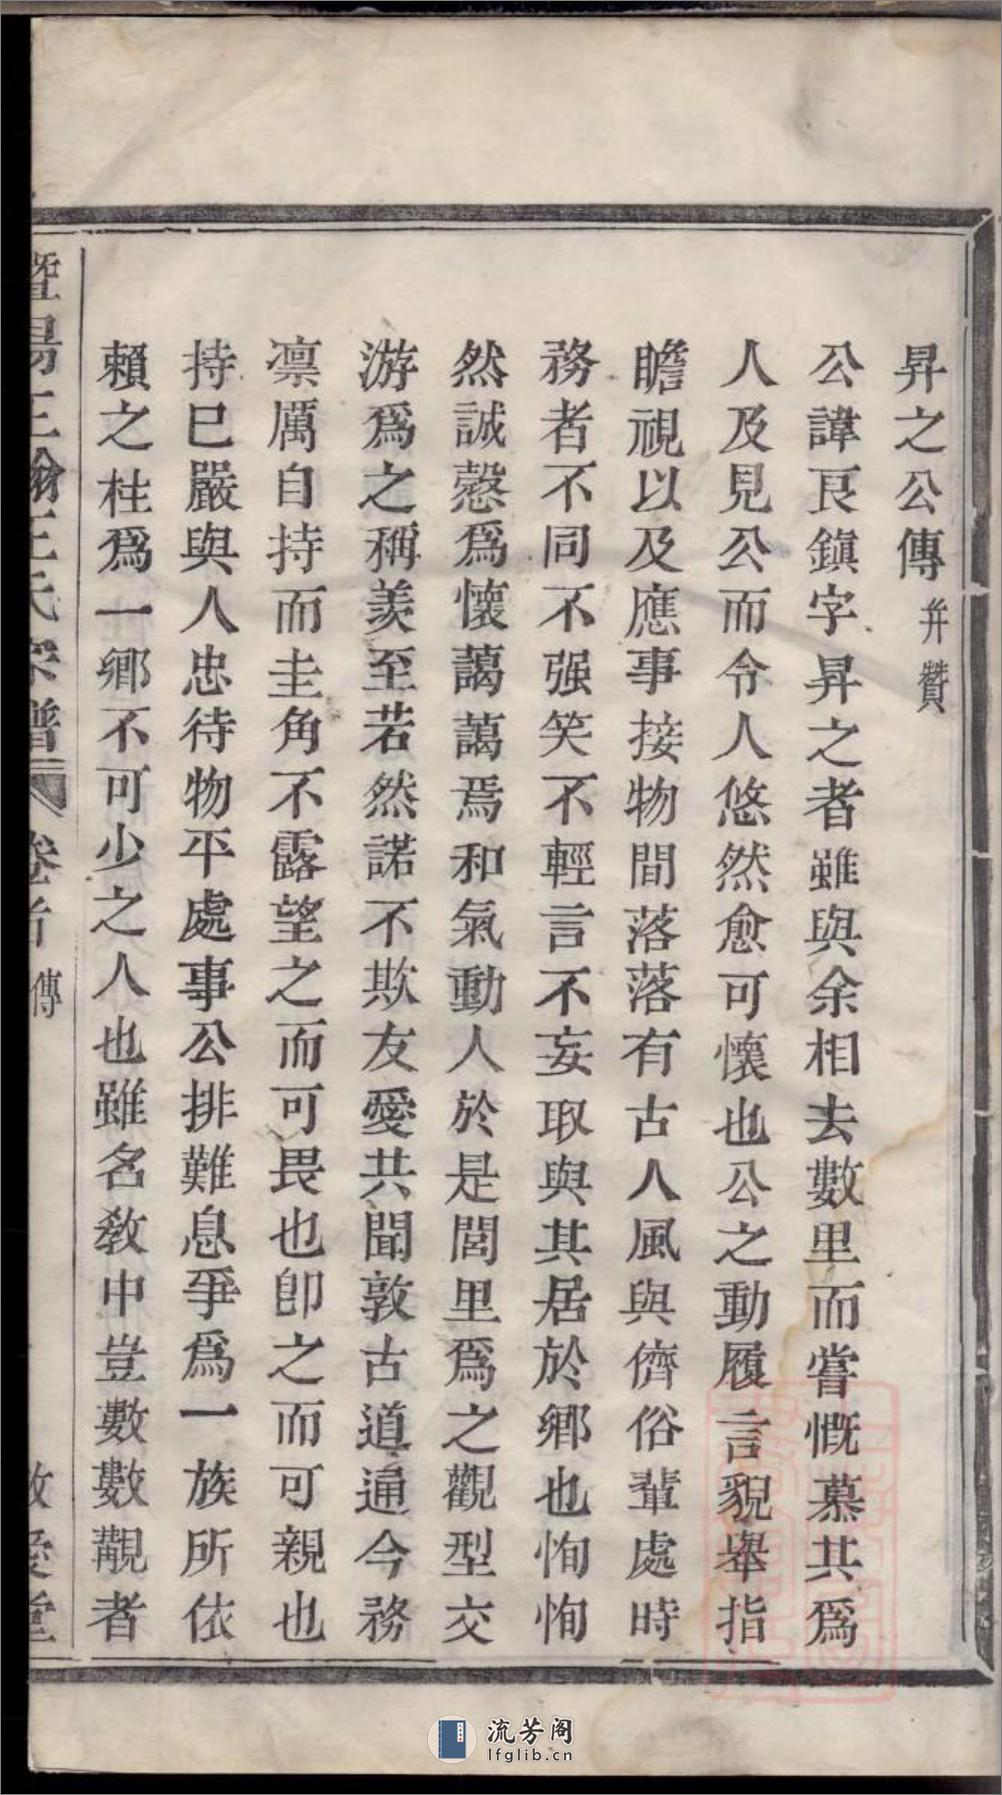 昇之公傳 并贊
公諱艮鎮字昇之者雖與余相去數里而嘗慨慕其爲
人及見公而令人悠然愈可懷也公之動履言貌舉指
瞻視以及應事接物間落落有古人風與儕俗輩處時
務者不同不强笑不輕言不妄取與其居於鄉也恂恂
然誠慤爲懷藹藹焉和氣動人於是閭里爲之觀型交
游爲之稱羨至若然諾不欺友愛共聞敦古道通今務
凛厲自持而圭角不露望之而可畏也卽之而可親也
持巳嚴與人忠待物平處事公排難息爭爲一族所依
賴之柱爲一鄉不可少之人也雖名教中豈數數覯者
暨陽 王氏宗譜 卷首 傳 愛堂
流芳阁
lfglib.cn